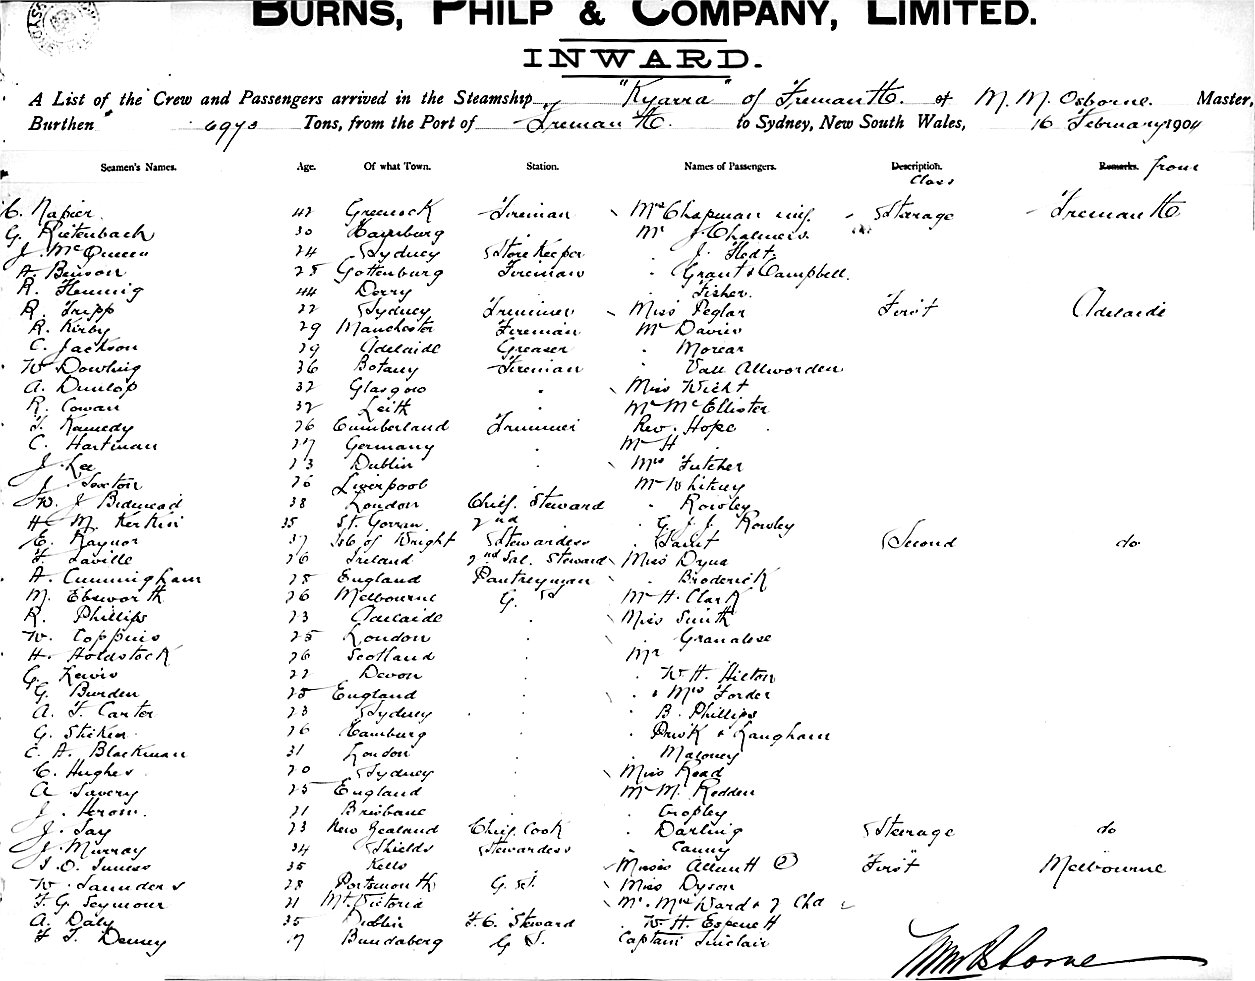 BURNS, PHILP & COMPANY, LIMITED.
INWARD.
A List of the Crew and Passengers arrived in the Steamship "Kyarra" of Fremantle. of M. M. Osborne. Master,
Burthen 6943 Tons, from the Port of Fremantle. to Sydney, New South Wales, 16 February 1904
Seamen's Names. Age. Of what Town. Station. Names of Passengers. Description. Remarks. from
Class
C. Napier. 42 Greenock Fireman Mrs Chapman inf. Steerage Fremantle
G. Rietenbach 30 Hamburg Mr J. Chalmers.
J. McQueen 24 Sydney Store Keeper J. Hedt.
A. Benson 25 Gottenburg Fireman Grant & Campbell.
R. Fleming 44 Derry Fisher.
R. Tripp 22 Sydney Trimmer Miss Peglar First Adelaide
R. Kirby 29 Manchester Fireman Mr Davies
C. Jackson 29 Adelaide Greaser Morcar
W. Dowling 36 Botany Fireman Van Allworden
A. Dunlop 32 Glasgow " Miss Wicht
R. Cowan 32 Leith Mr McEllister
T. Kennedy 26 Cumberland Trimmer Rev. Hope
C. Hartman 27 Germany " Mr H
J. Lee 23 Dublin " Mrs Futcher
J. Sexton 26 Liverpool Mr Whitney
W. J. Bidmead 38 London Chief Steward " Rowley
H. M. Kerkin 35 St. Gorran 2nd " G. J. J. Rowley
E. Raynor 37 Isle of Wright Stewardess " Saint Second do
F. Laville 26 Ireland 2nd Sal. Steward Miss Dyne
A. Cunningham 25 England Pantreyman " Broderick
M. Ebsworth 26 Melbourne G. S Mr H. Clark
R. Phillips 23 Adelaide " Miss Smith
W. Coppins 25 London " Granalese
H. Holdstock 26 Scotland " Mr
G. Lewis 22 Devon " " W. H. Hilton
G. Burden 25 England " " Mrs Forder
A. F. Carter 23 Sydney " " B. Phillips
G. 26 Hamburg " & Langham
C. A. Blackman 31 London " " Maloney
C. Hughes 20 Sydney " Miss Read
A Savery 25 England " Mr M. Redden
J. Heron. 21 Brisbane " Cropley
J. Say 23 New Zealand Chief Cook " Darling Steerage do
J. Murray 34 Shields Stewardess " Canny
J. O. Inness 35 Kells Misses Allnutt (2) First Melbourne
W. Saunders 28 Portsmouth G. S. Miss Dyson
F. G. Seymour 21 Mt. Victoria Mr. Mrs Ward & 2 Chd
A. Daly 35 Dublin F. C. Steward " W. H. Espenett
F. J. Denney 17 Bundaberg G S. Captain Sinclair
MM Osborne